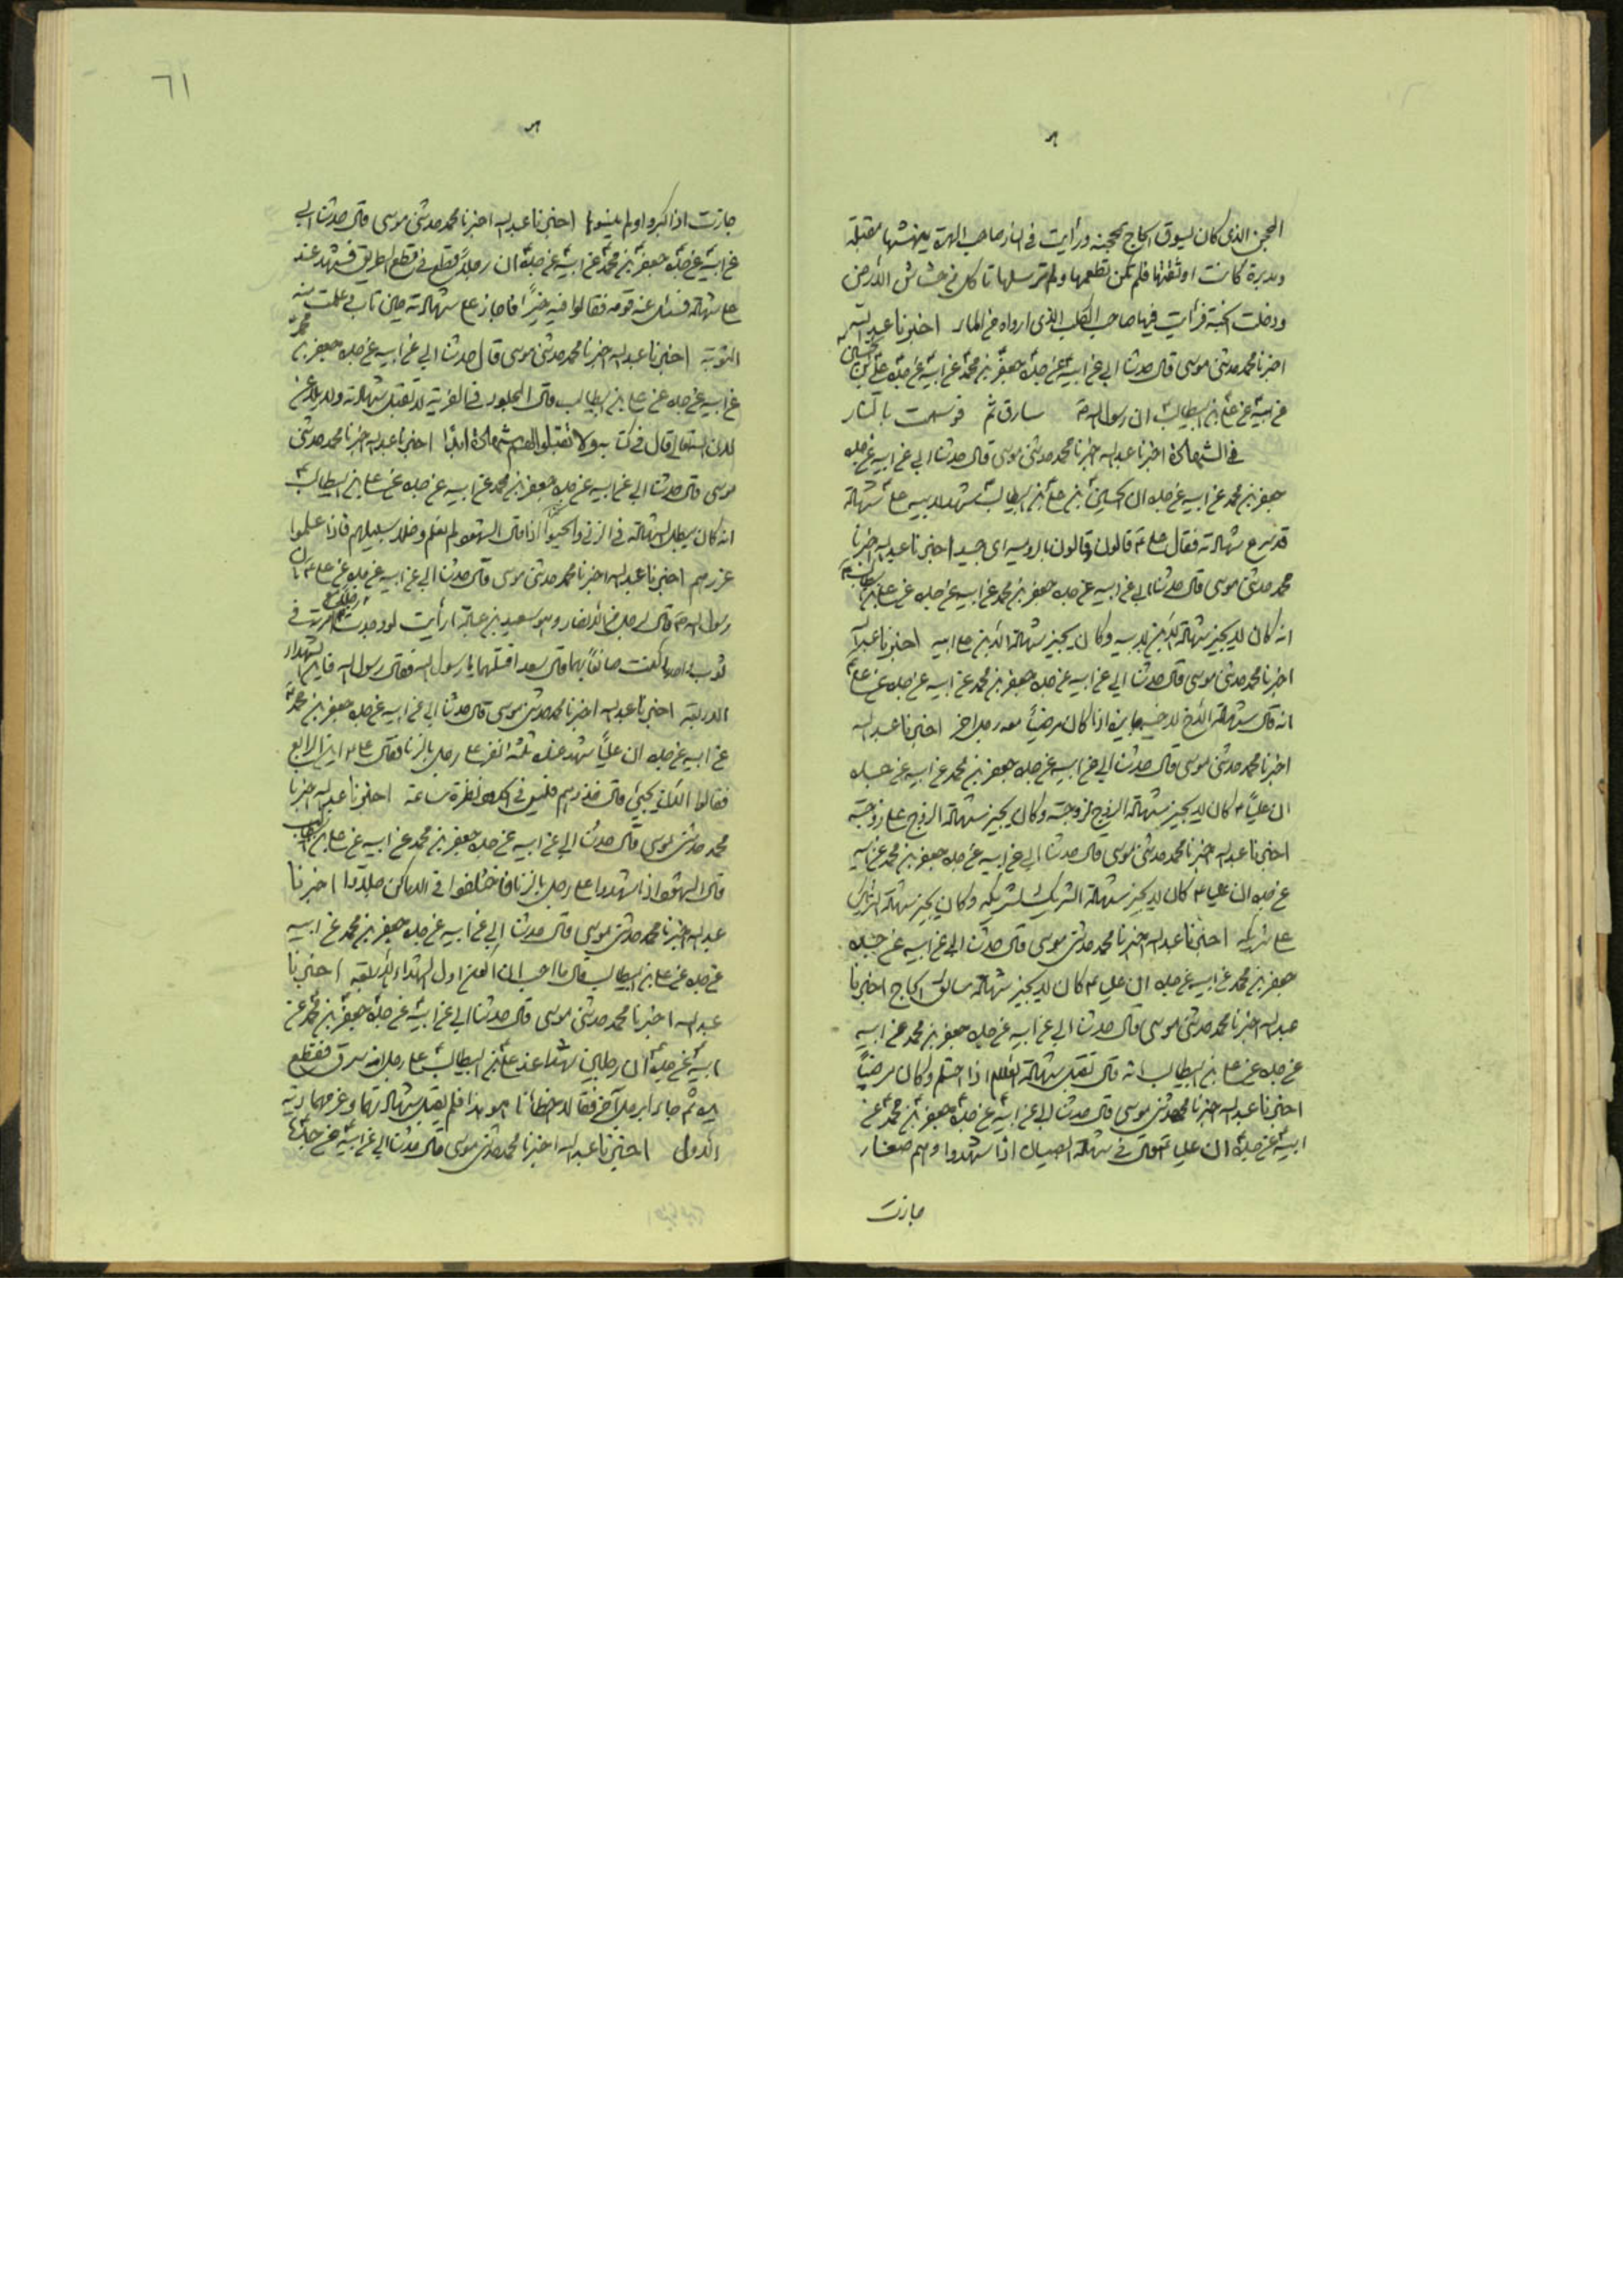 المحجن الذى كان يسوق الحاج بمحجنه ورأيت فى النار صاحب الهرة ينهشها مقبلة
ومدبرة كانت اوثقتها فلم تكن تطعمها ولم ترسلها تاكل من خشاش الأرض
ودخلت الجنة فرأيت فيها صاحب الكلب الذى ارواه من الماء اخبرنا عبد الله
اخبرنا محمد حدثنى موسى قال حدثنا ابى عن ابيه عن جده جعفر بن محمد عن ابيه عن جده على بن الحسين
عن ابيه عن على بن ابيطالب ان رسول الله سارق ثم بالنار
فى الشهادة اخبرنا عبد الله اخبرنا محمد حدثنى موسى قال حدثنا ابى عن ابيه عن جده
جعفر بن محمد عن ابيه عن جده ان الحسين بن على بن ابيطالب شهد لابيه على شهادة
شهادته فقال على قالون وقالون بالرومية اى جيد اخبرنا عبد الله اخبرنا
محمد حدثنى موسى قال حدثنا ابى عن ابيه عن جده جعفر بن محمد عن ابيه عن جده عن على بن ابيطالب
انه كان لا يجيز شهادة الابن لابيه وكان يجيز شهادة الابن على ابيه اخبرنا عبد الله
اخبرنا محمد حدثنى موسى قال حدثنا ابى عن ابيه عن جده جعفر بن محمد عن ابيه عن جده عن على
انه قال شهادة الأخ لاخيه جايزة اذا كان مرضيا معه رجل اخر اخبرنا عبد الله
اخبرنا محمد حدثنى موسى قال حدثنا ابى عن ابيه عن جده جعفر بن محمد عن ابيه عن جده
ان عليا كان لا يجيز شهادة الزوج لزوجته وكان يجيز شهادة الزوج على زوجته
اخبرنا عبد الله اخبرنا محمد حدثنى موسى قال حدثنا ابى عن ابيه عن جده جعفر بن محمد عن ابيه
عن جده ان عليا كان لا يجيز شهادة الشريك لشريكه وكان يجيز شهادة الشريك
على شريكه اخبرنا عبد الله اخبرنا محمد حدثنى موسى قال حدثنا ابى عن ابيه عن جده
جعفر بن محمد عن ابيه عن جده ان على كان لا يجيز شهادة سائق الحاج اخبرنا
عبد الله اخبرنا محمد حدثنى موسى قال حدثنا ابى عن ابيه عن جده جعفر بن محمد عن ابيه
عن جده عن على بن ابيطالب انه قال تقبل شهادة الغلام اذا احتلم وكان مرضيا
اخبرنا عبد الله اخبرنا محمد حدثنى موسى قال حدثنا ابى عن ابيه عن جده جعفر بن محمد عن
ابيه عن جده ان عليا قال فى شهادة الصبيان اذا شهدوا وهم صغار
جازت
٦١
جازت اذا كبروا ولم ينسوا اخبرنا عبد الله اخبرنا محمد حدثنى موسى قال حدثنا ابى
عن ابيه عن جده جعفر بن محمد عن ابيه عن جده ان رجلا قطع فى قطع الطريق فشهد عنده
على شهادة فسئل عنه قومه فقالوا فيه خيرا فاجاز على شهادته حين تاب وعلمت منه
التوبة اخبرنا عبد الله اخبرنا محمد حدثنى موسى قال حدثنا ابى عن ابيه عن جده جعفر بن محمد
عن ابيه عن جده عن على بن ابيطالب قال المجلود فى الفرية لا تقبل شهادته
لان الله تعالى قال فى كتابه ولا تقبلوا لهم شهادة ابدا اخبرنا عبد الله اخبرنا محمد حدثنى
موسى قال حدثنا ابى عن ابيه عن جده جعفر بن محمد عن ابيه عن جده عن على بن ابيطالب
انه كان يبطل شهادة فى الزنى اذا قال الشهود لم نعلم وخلا سبيلهم فاذا علموا
عزرهم اخبرنا عبد الله اخبرنا محمد حدثنى موسى قال حدثنا ابى عن ابيه عن جده عن على ان
رسول الله قال لرجل من الأنصار وهو سعد بن عبادة ارأيت لو وجدت رجلا مع امرأتك فى
ثوب واحد ما كنت صانعا بهما قال سعد اقتلهما يا رسول الله فقال رسول الله فاين الشهداء
الاربعة اخبرنا عبد الله اخبرنا محمد حدثنى موسى قال حدثنا ابى عن ابيه عن جده جعفر بن محمد
عن ابيه عن جده ان عليا شهد عنده ثلثة انفر على رجل بالزنا فقال على اين الرابع
فقالوا الان يجئ قال خذوهم فليس فى الحدود نظرة ساعة اخبرنا عبد الله اخبرنا
محمد حدثنى موسى قال حدثنا ابى عن ابيه عن جده جعفر بن محمد عن ابيه عن على بن ابيطالب
قال الشهود اذا شهدوا على رجل بالزنا فاختلفوا فى الاماكن جلدوا اخبرنا
عبد الله اخبرنا محمد حدثنى موسى قال حدثنا ابى عن ابيه عن جده جعفر بن محمد عن ابيه
عن جده عن على بن ابيطالب قال ما احب ان اكون اول الشهداء الاربعة اخبرنا
عبد الله اخبرنا محمد حدثنى موسى قال حدثنا ابى عن ابيه عن جده جعفر بن محمد عن
ابيه عن جده ان رجلين شهدا عند على بن ابيطالب على رجل انه سرق فقطع
يده ثم جاءا برجل آخر فقالا اخطأنا هو هذا فلم يقبل شهادتهما وغرمهما دية
الاول اخبرنا عبد الله اخبرنا محمد حدثنى موسى قال حدثنا ابى عن ابيه عن جده